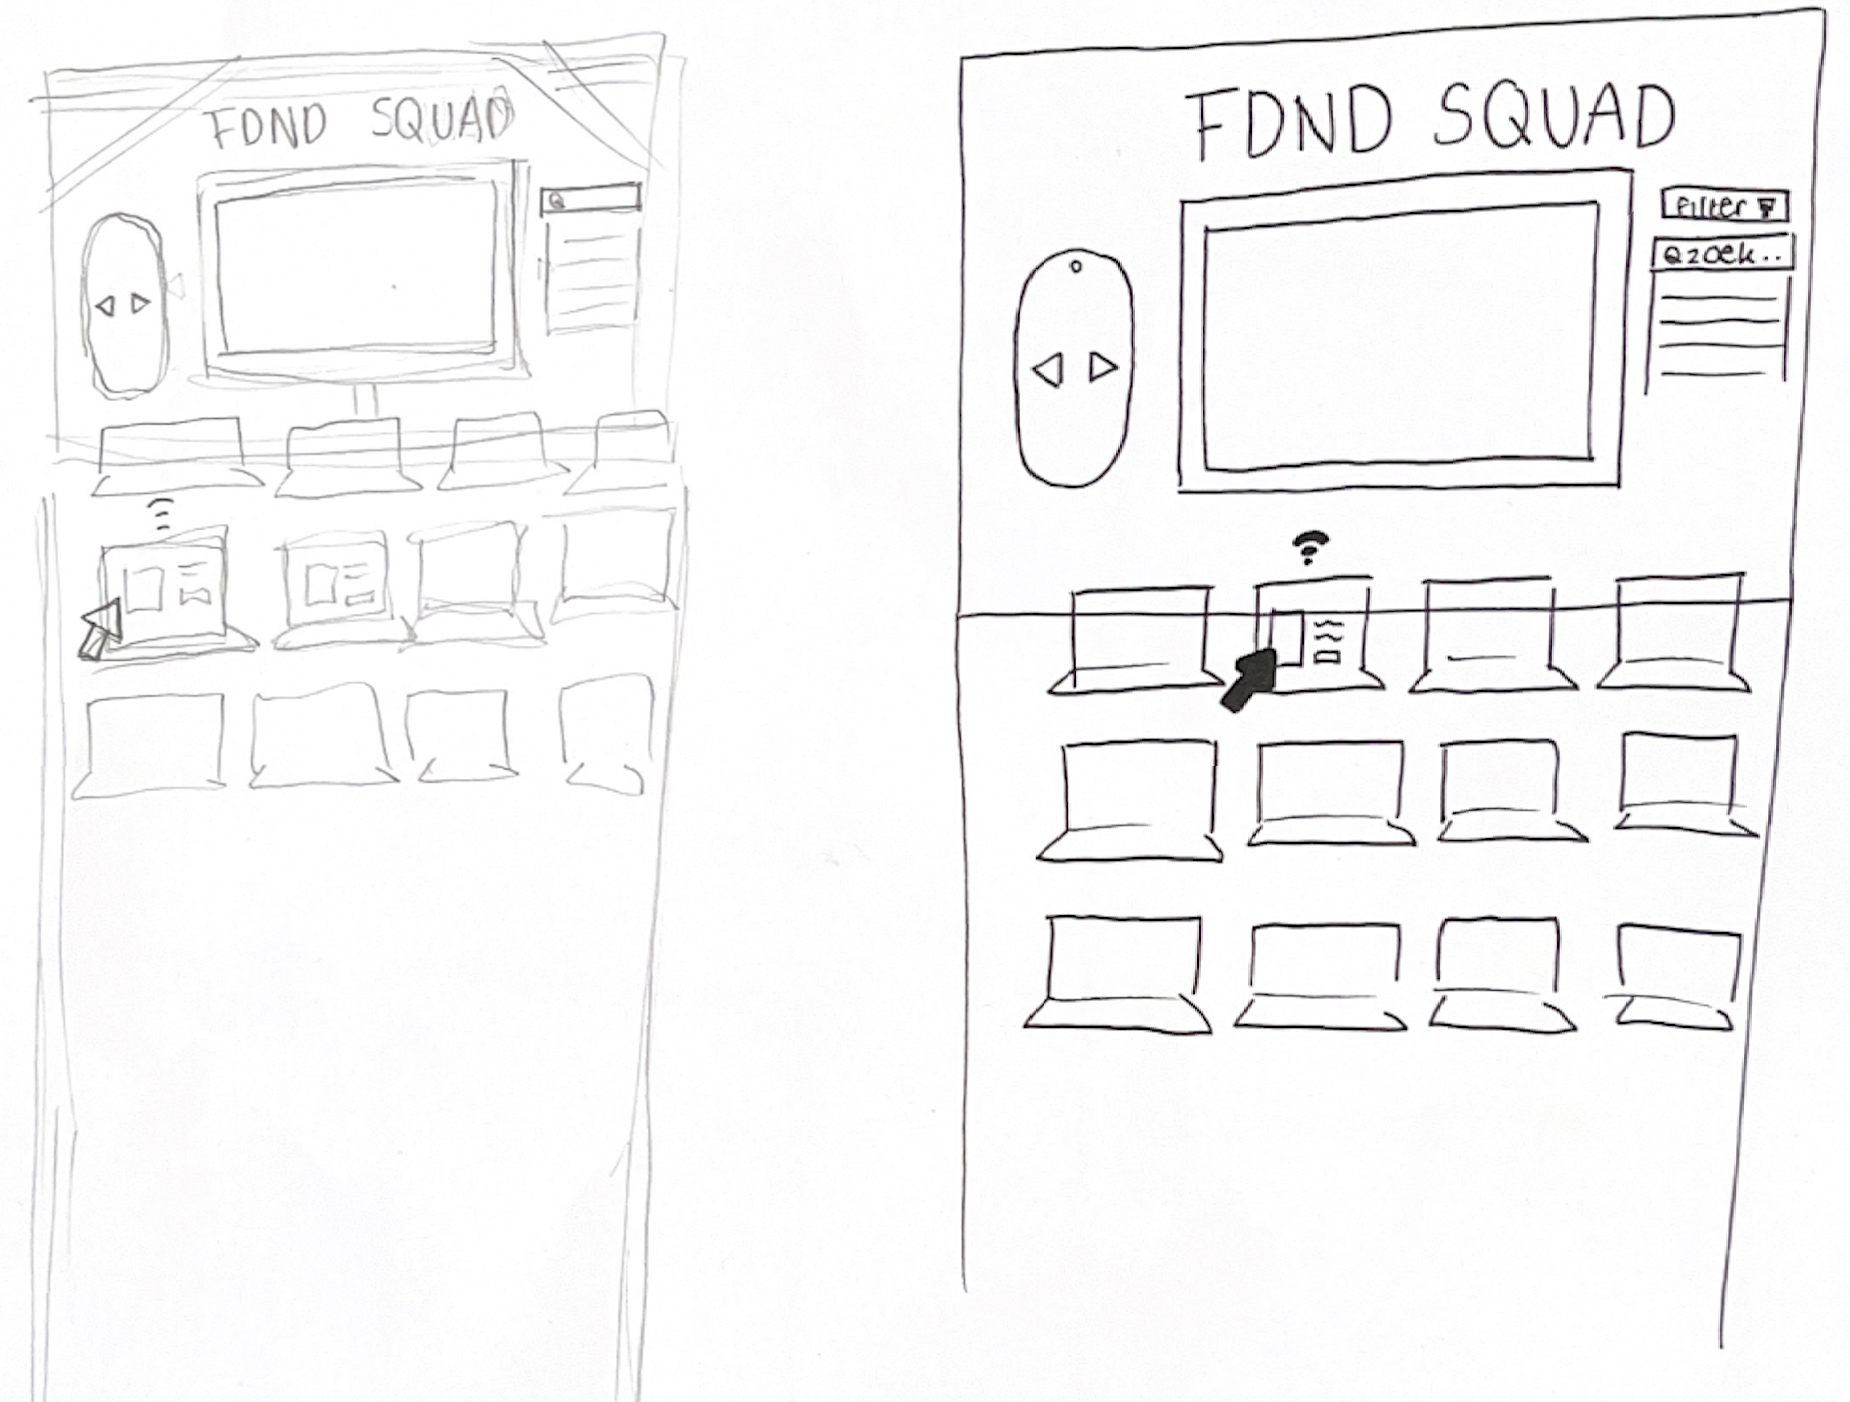 FDND SQUAD
FDND SQUAD
Filter
zoek..